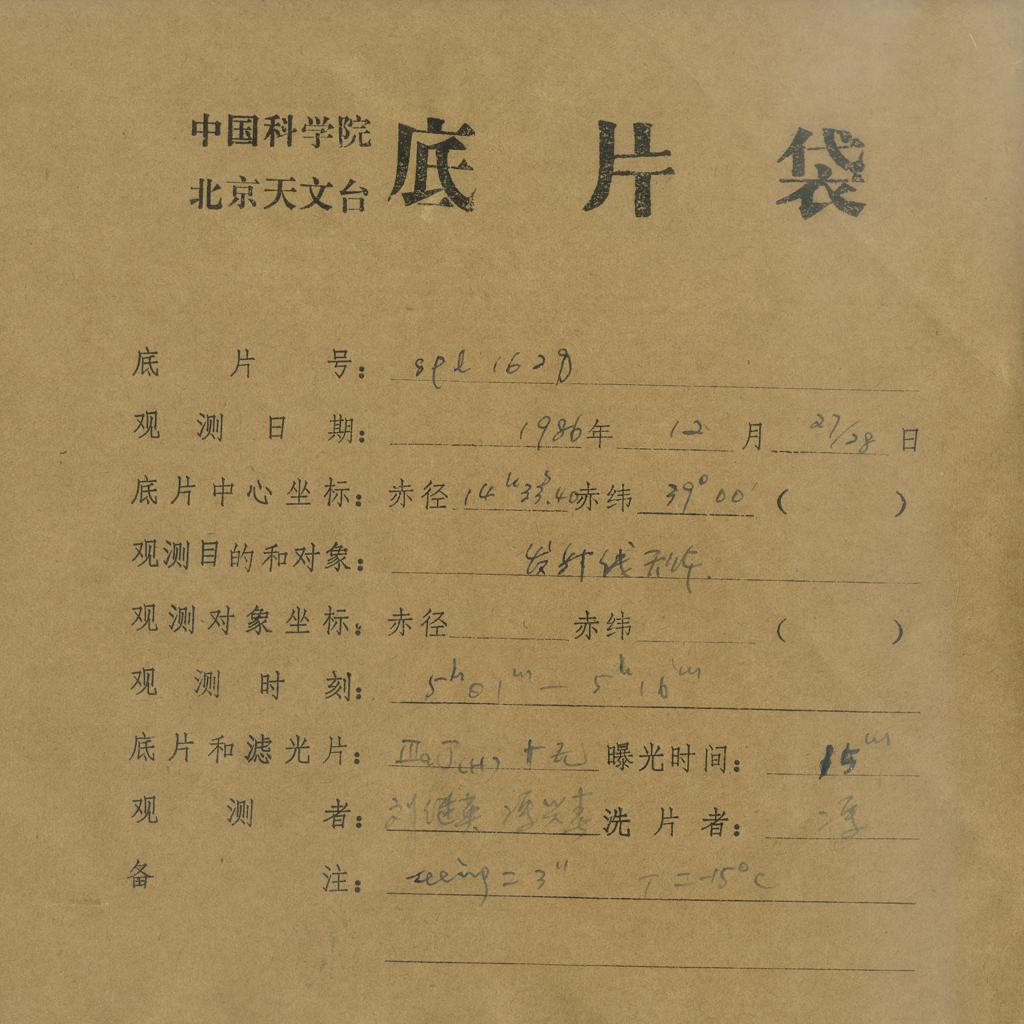 中国科学院
北京天文台
底片袋
底片号： spl 1629
观测日期： 1986年 12 月 27/28 日
底片中心坐标：赤径 14h33.40 赤纬 39°00′ （ ）
观测目的和对象： 发射线天体
观测对象坐标：赤径 赤纬 （ ）
观测时刻： 5h01m — 5h16m
底片和滤光片： ⅢaJ(H) + 无 曝光时间： 15m
观测者： 刘继英 洗片者：
备注： seeing = 3″ T = -15°C